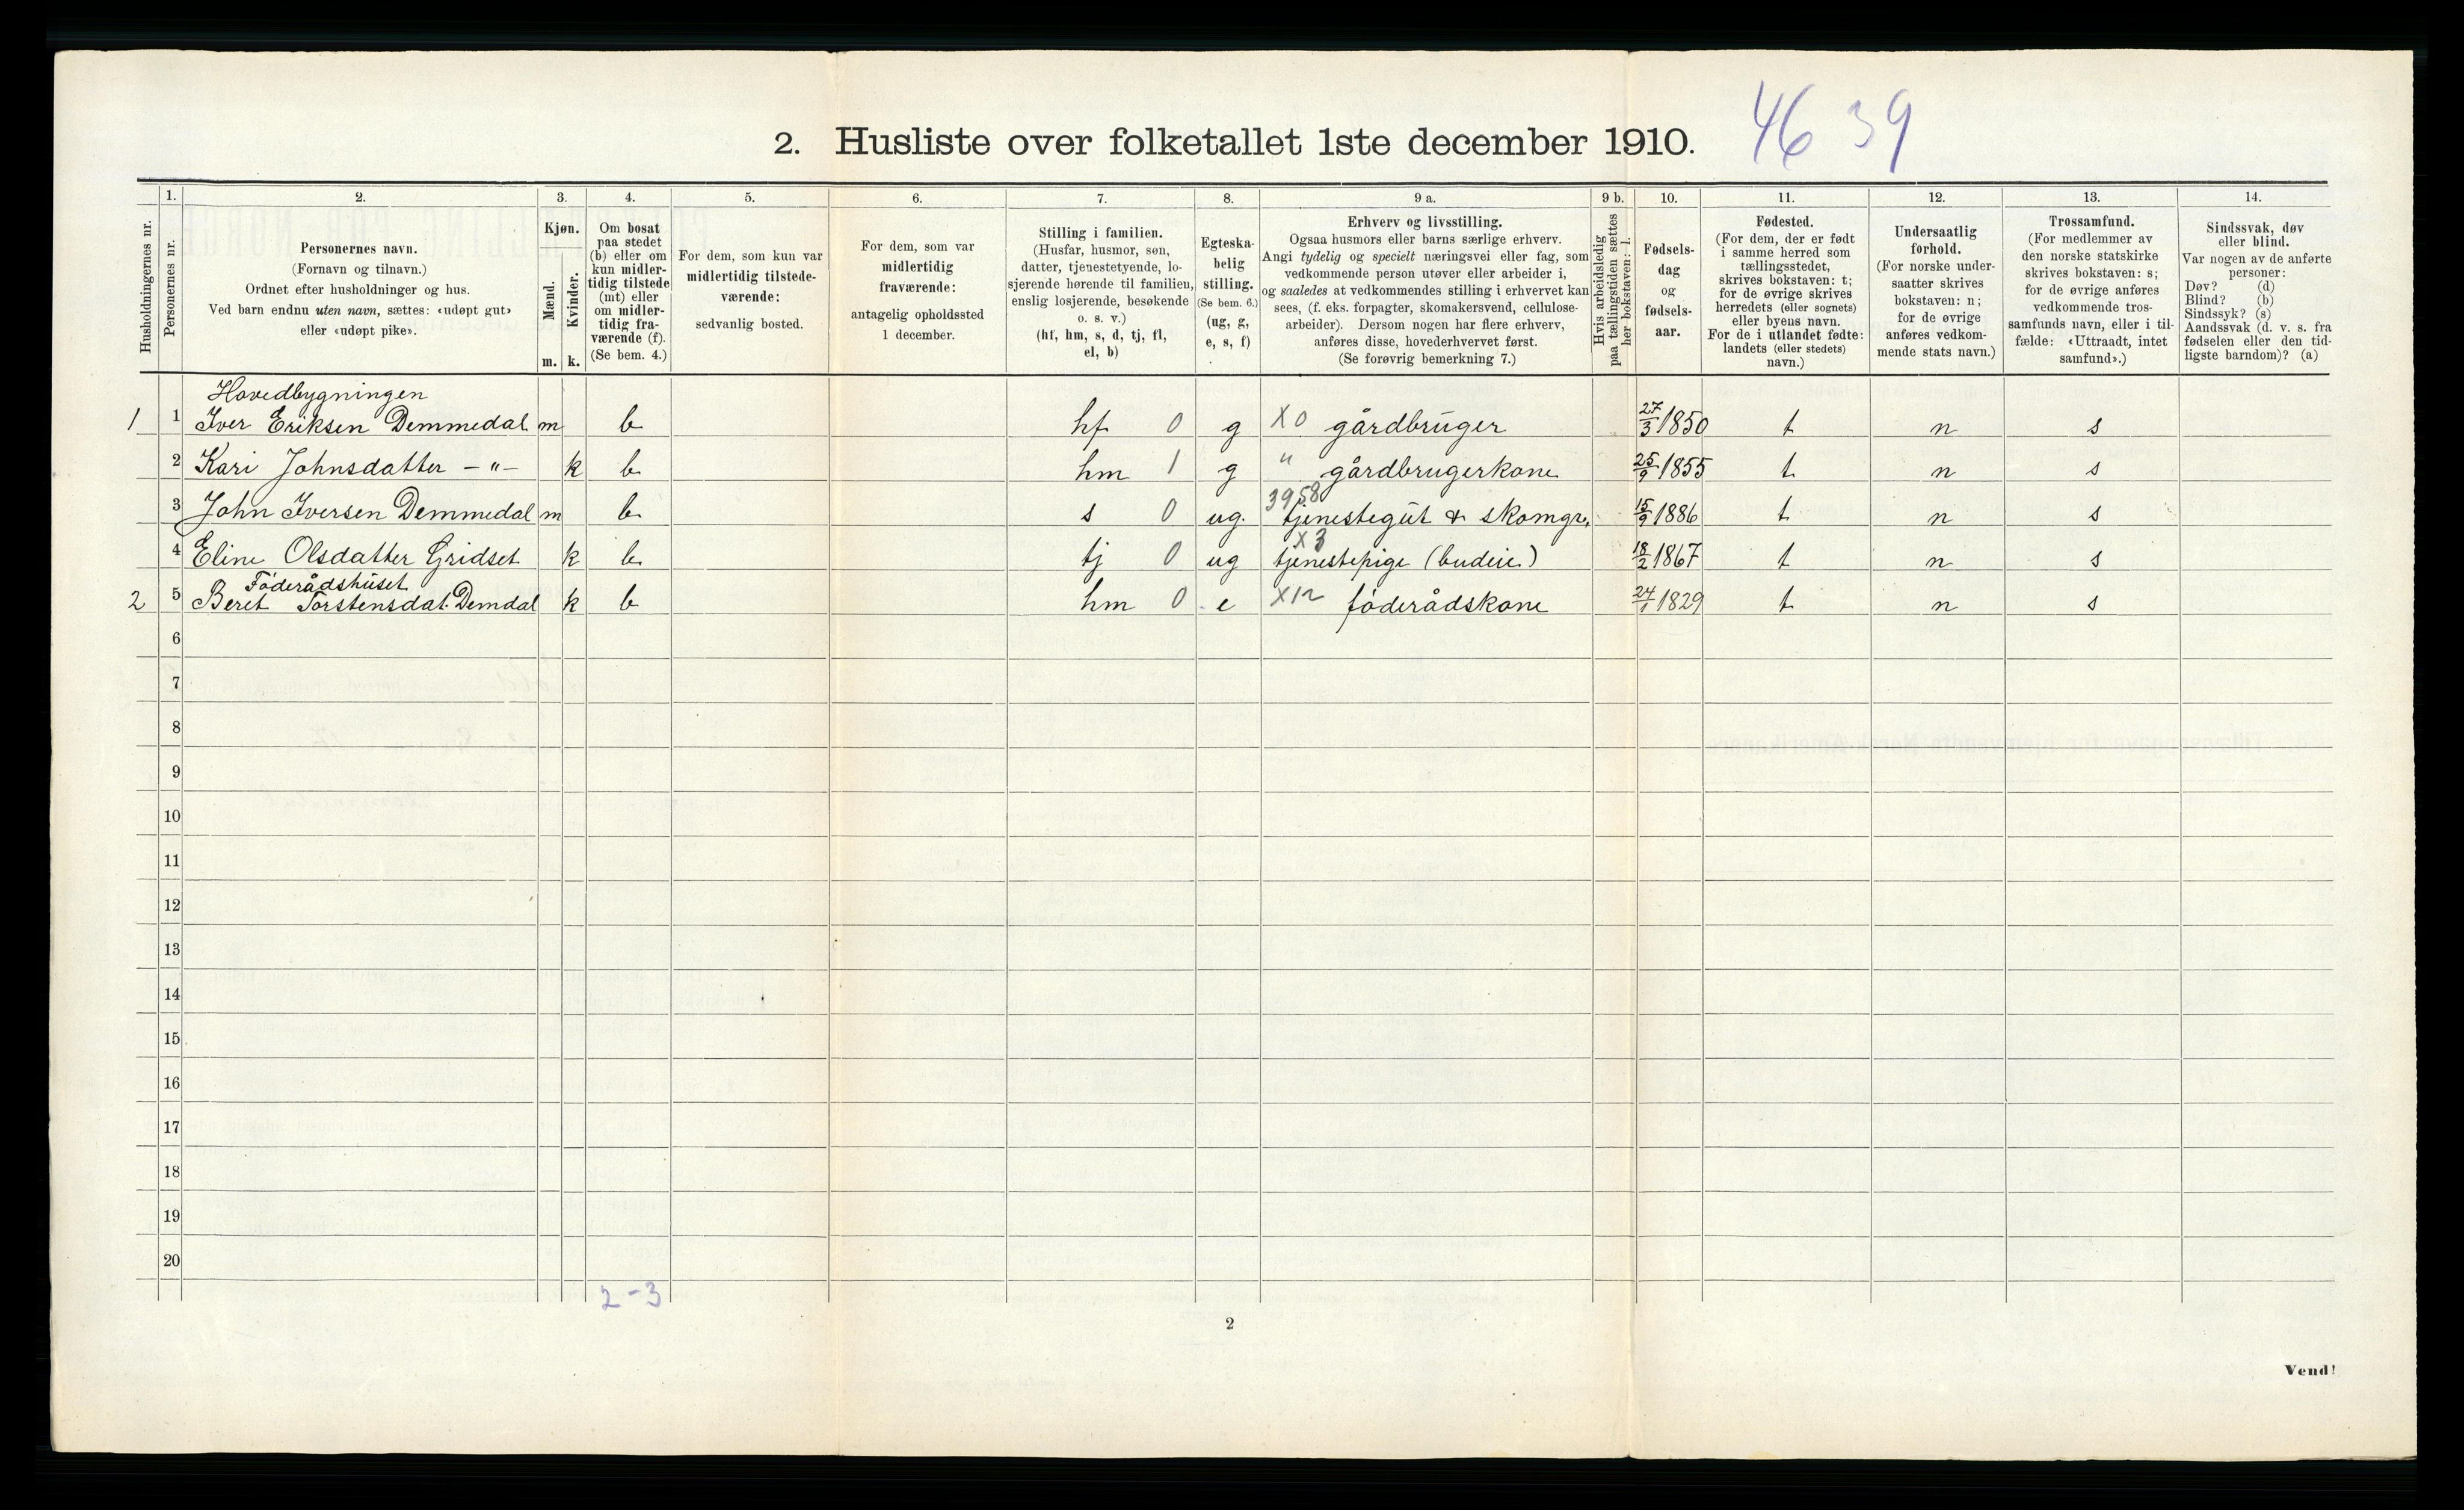 46 39
2. Husliste over folketallet 1ste december 1910.
Husholdningernes nr.
1.
Personernes nr.
2.
Personernes navn.
(Fornavn og tilnavn.)
Ordnet efter husholdninger og hus.
Ved barn endnu uten navn, sættes: «udøpt gut»
eller «udøpt pike».
3.
Kjøn.
Mænd.
Kvinder.
m. k.
4.
Om bosat
paa stedet
(b) eller om
kun midler-
tidig tilstede
(mt) eller
om midler-
tidig fra-
værende (f).
(Se bem. 4.)
5.
For dem, som kun var
midlertidig tilstede-
værende:
sedvanlig bosted.
6.
For dem, som var
midlertidig
fraværende:
antagelig opholdssted
1 december.
7.
Stilling i familien.
(Husfar, husmor, søn,
datter, tjenestetyende, lo-
sjerende hørende til familien,
enslig losjerende, besøkende
o. s. v.)
(hf, hm, s, d, tj, fl,
el, b)
8.
Egteska-
belig
stilling.
(Se bem. 6.)
(ug, g,
e, s, f)
9 a.
Erhverv og livsstilling.
Ogsaa husmors eller barns særlige erhverv.
Angi tydelig og specielt næringsvei eller fag, som
vedkommende person utøver eller arbeider i,
og saaledes at vedkommendes stilling i erhvervet kan
sees, (f. eks. forpagter, skomakersvend, cellulose-
arbeider). Dersom nogen har flere erhverv,
anføres disse, hovederhvervet først.
(Se forøvrig bemerkning 7.)
9 b.
Hvis arbeidsledig
paa tællingstiden sættes
her bokstaven: l.
10.
Fødsels-
dag
og
fødsels-
aar.
11.
Fødested.
(For dem, der er født
i samme herred som
tællingsstedet,
skrives bokstaven: t;
for de øvrige skrives
herredets (eller sognets)
eller byens navn.
For de i utlandet fødte:
landets (eller stedets)
navn.)
12.
Undersaatlig
forhold.
(For norske under-
saatter skrives
bokstaven: n;
for de øvrige
anføres vedkom-
mende stats navn.)
13.
Trossamfund.
(For medlemmer av
den norske statskirke
skrives bokstaven: s;
for de øvrige anføres
vedkommende tros-
samfunds navn, eller i til-
fælde: «Uttraadt, intet
samfund».)
14.
Sindssvak, døv
eller blind.
Var nogen av de anførte
personer:
Døv? (d)
Blind? (b)
Sindssyk? (s)
Aandssvak (d. v. s. fra
fødselen eller den tid-
ligste barndom)? (a)
Hovedbygningen
1 1 Iver Eriksen Demmedal m b hf 0 g X0 gårdbruger 27/3 1850 t n s
2 Kari Johnsdatter — " — k b hm 1 g " gårdbrugerkone 25/9 1855 t n s
3958
3 John Iversen Demmedal m b s 0 ug. tjenestegut & skomgr. 15/9 1886 t n s
X3
4 Eline Olsdatter Gridset k b tj 0 ug tjenestepige (budeie) 18/2 1867 t n s
Föderådshuset
2 5 Beret Torstensdat. Demdal k b hm 0 e X12 föderådskone 24/1 1829 t n s
6
7
8
9
10
11
12
13
14
15
16
17
18
19
20
2-3
2
Vend!